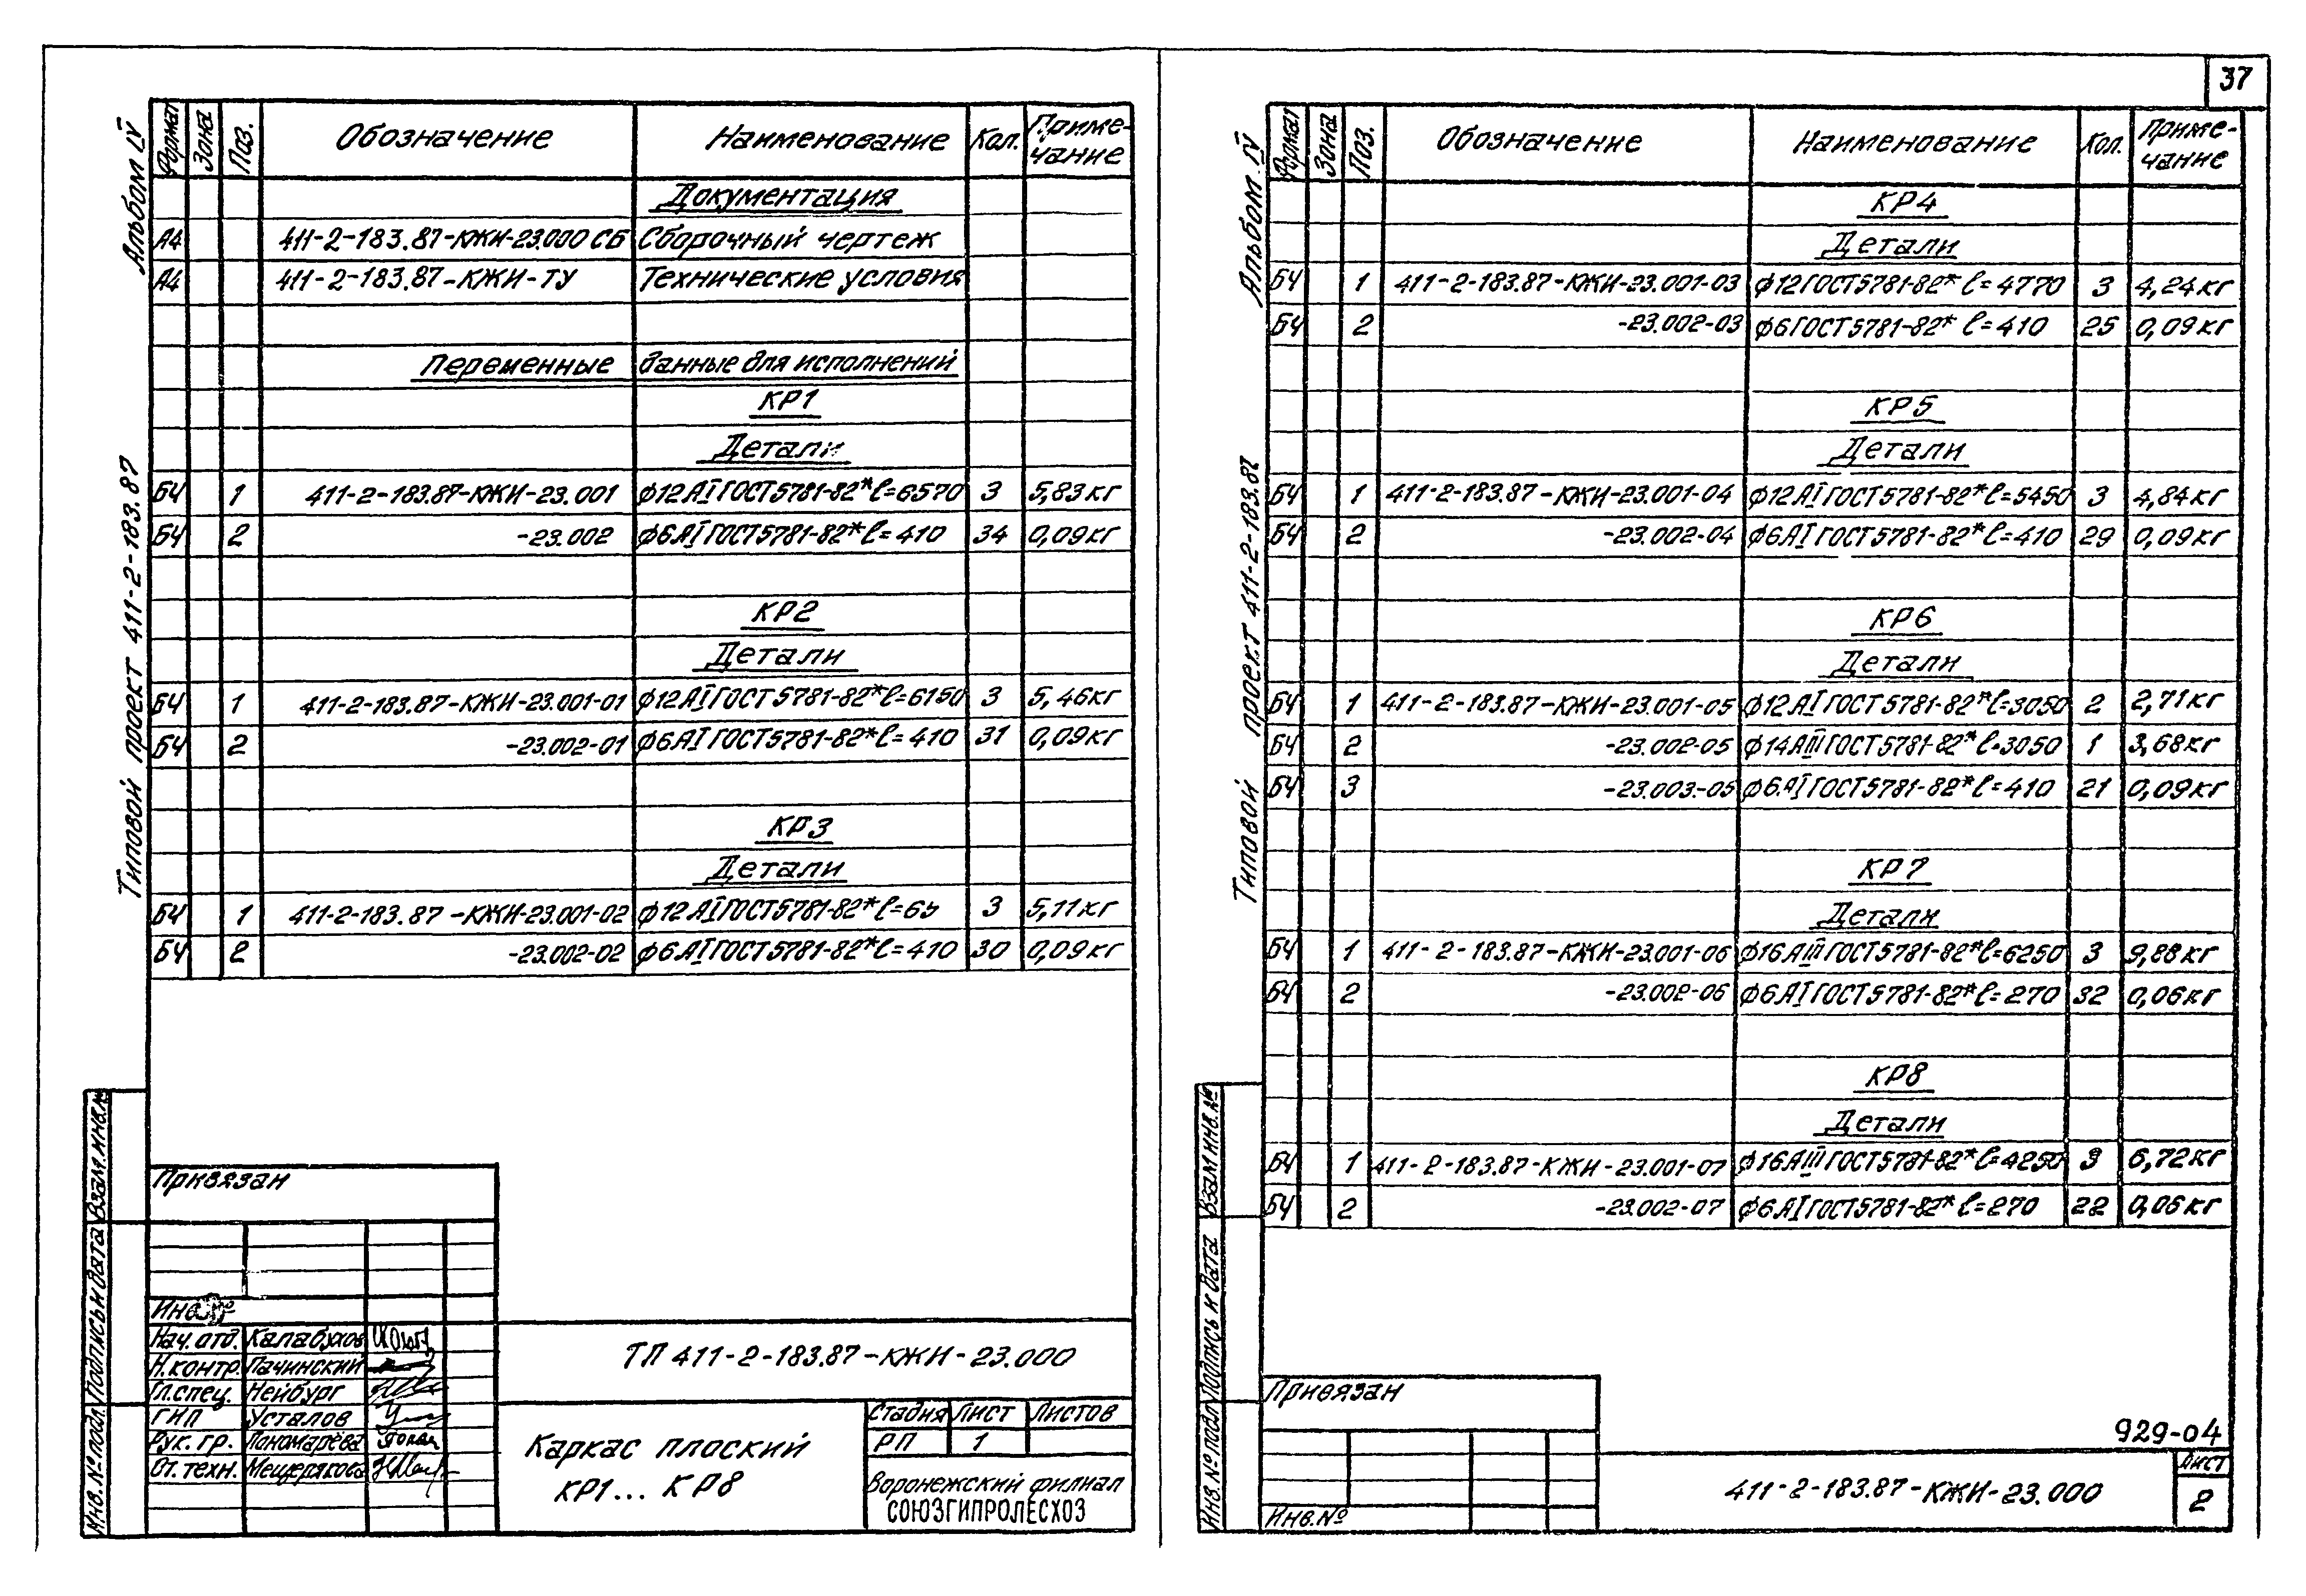 37
Альбом IV
Типовой проект 411-2-183.87
Формат Зона Поз. Обозначение Наименование Кол. Приме-
чание
Документация
А4 411-2-183.87-КЖИ-23.000 СБ Сборочный чертеж
А4 411-2-183.87-КЖИ-ТУ Технические условия
Переменные данные для исполнений
КР1
Детали
БЧ 1 411-2-183.87-КЖИ-23.001 ф12АI ГОСТ5781-82* ℓ=6570 3 5,83кг
БЧ 2 -23.002 ф6АI ГОСТ5781-82* ℓ=410 34 0,09кг
КР2
Детали
БЧ 1 411-2-183.87-КЖИ-23.001-01 ф12АI ГОСТ5781-82* ℓ=6150 3 5,46кг
БЧ 2 -23.002-01 ф6АI ГОСТ5781-82* ℓ=410 31 0,09кг
КР3
Детали
БЧ 1 411-2-183.87-КЖИ-23.001-02 ф12АI ГОСТ5781-82* 3 5,11кг
БЧ 2 -23.002-02 ф6АI ГОСТ5781-82* ℓ=410 30 0,09кг
Взам.инв.№
Подпись и дата
Инв.№подл.
Привязан
Инв.№
Нач.отд. Калабухов
Н.контр. Пачинский
Гл.спец. Нейбург
ГИП Усталов
Рук.гр. Пономарёва
Ст.техн. Мещерякова
ТП 411-2-183.87-КЖИ-23.000
Каркас плоский
КР1...КР8
Стадия Лист Листов
РП 1
Воронежский филиал
СОЮЗГИПРОЛЕСХОЗ
Альбом IV
Типовой проект 411-2-183.87
Формат Зона Поз. Обозначение Наименование Кол. Приме-
чание
КР4
Детали
БЧ 1 411-2-183.87-КЖИ-23.001-03 ф12ГОСТ5781-82* ℓ=4770 3 4,24кг
БЧ 2 -23.002-03 ф6ГОСТ5781-82* ℓ=410 25 0,09кг
КР5
Детали
БЧ 1 411-2-183.87-КЖИ-23.001-04 ф12АI ГОСТ5781-82* ℓ=5450 3 4,84кг
БЧ 2 -23.002-04 ф6АI ГОСТ5781-82* ℓ=410 29 0,09кг
КР6
Детали
БЧ 1 411-2-183.87-КЖИ-23.001-05 ф12АI ГОСТ5781-82* ℓ=3050 2 2,71кг
БЧ 2 -23.002-05 ф14АIII ГОСТ5781-82* ℓ=3050 1 3,68кг
БЧ 3 -23.003-05 ф6АI ГОСТ5781-82* ℓ=410 21 0,09кг
КР7
Детали
БЧ 1 411-2-183.87-КЖИ-23.001-06 ф16АIII ГОСТ5781-82* ℓ=6250 3 9,88кг
БЧ 2 -23.002-06 ф6АI ГОСТ5781-82* ℓ=270 32 0,06кг
КР8
Детали
БЧ 1 411-2-183.87-КЖИ-23.001-07 ф16АIII ГОСТ5781-82* ℓ=4250 3 6,72кг
БЧ 2 -23.002-07 ф6АI ГОСТ5781-82* ℓ=270 22 0,06кг
Взам инв.№
Подпись и дата
Инв.№подл
Привязан
Инв.№
929-04
411-2-183.87-КЖИ-23.000
Лист
2